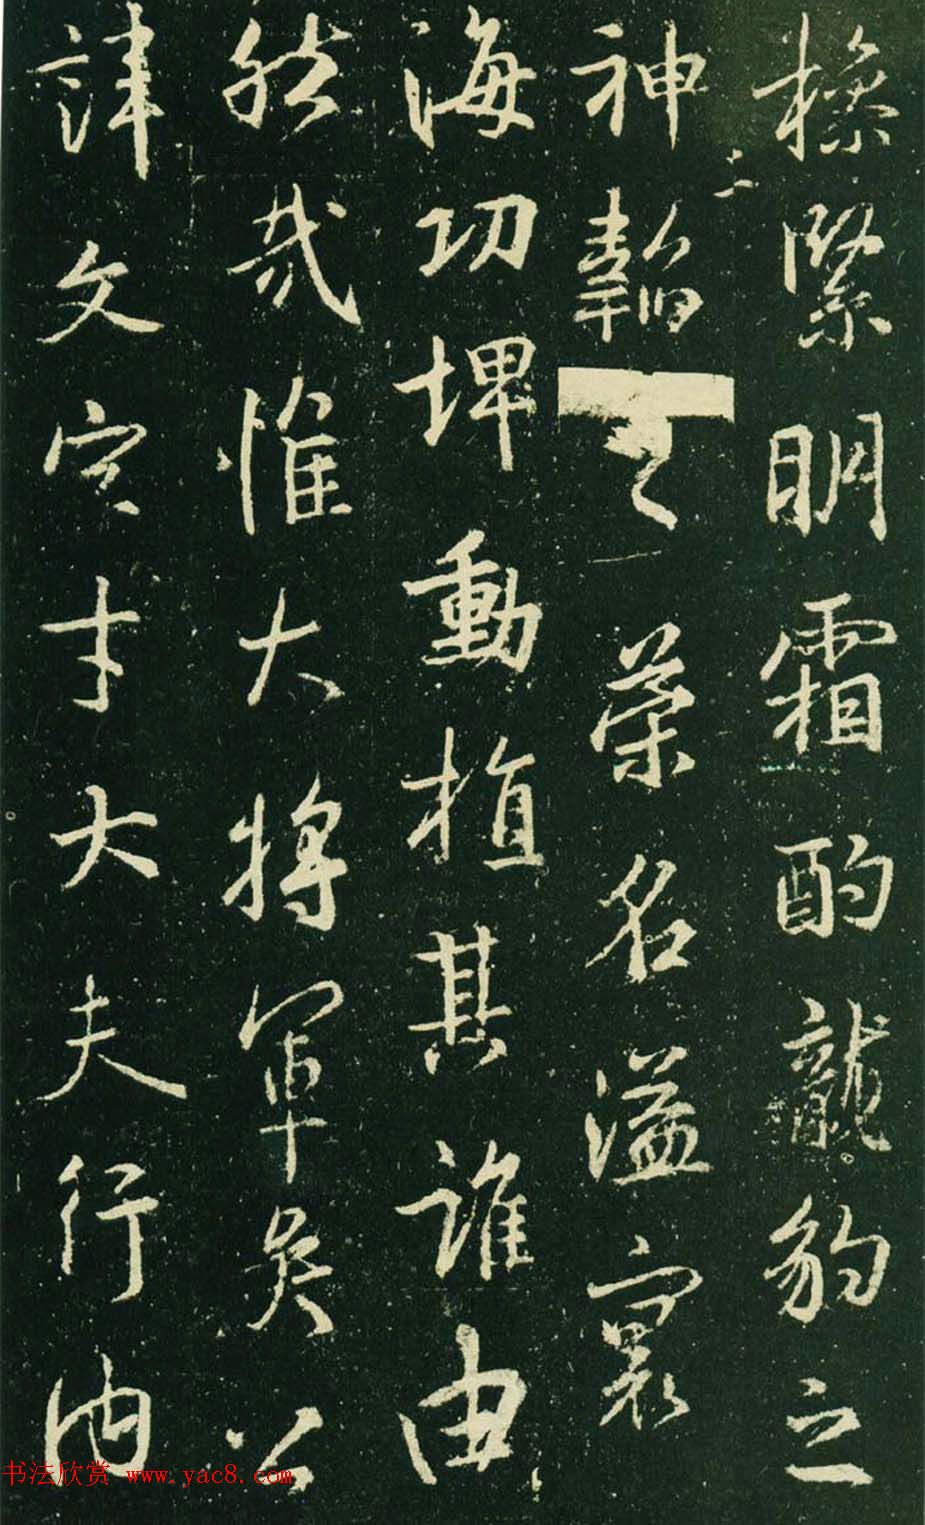 操緊明霜酌龍豹之
神韜之榮名溢寰
海功埤動植其誰由
然哉惟大將軍矣公
諱文字才大夫行內
书法欣赏 www.yac8.com